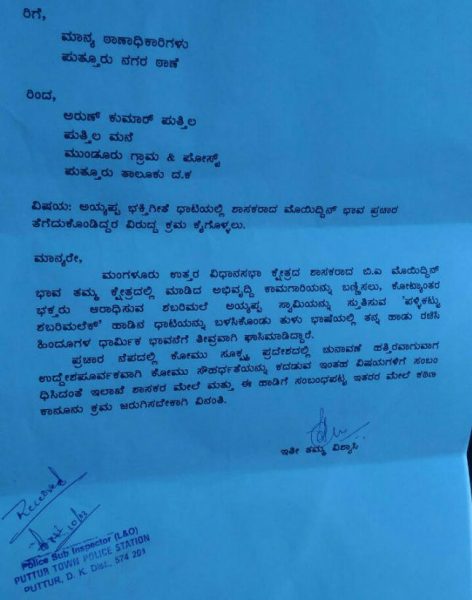 ರಿಗೆ,
ಮಾನ್ಯ ಠಾಣಾಧಿಕಾರಿಗಳು
ಪುತ್ತೂರು ನಗರ ಠಾಣೆ
ರಿಂದ,
ಅರುಣ್ ಕುಮಾರ್ ಪುತ್ತಿಲ
ಪುತ್ತಿಲ ಮನೆ
ಮುಂಡೂರು ಗ್ರಾಮ & ಪೋಸ್ಟ್
ಪುತ್ತೂರು ತಾಲೂಕು ದ.ಕ
ವಿಷಯ: ಅಯ್ಯಪ್ಪ ಭಕ್ತಿಗೀತೆ ಧಾಟಿಯಲ್ಲಿ ಶಾಸಕರಾದ ಮೊಯಿದ್ದಿನ್ ಭಾವ ಪ್ರಚಾರ
ತೆಗೆದುಕೊಂಡಿದ್ದರ ವಿರುದ್ದ ಕ್ರಮ ಕೈಗೊಳ್ಳಲು.
ಮಾನ್ಯರೇ,
ಮಂಗಳೂರು ಉತ್ತರ ವಿಧಾನಸಭಾ ಕ್ಷೇತ್ರದ ಶಾಸಕರಾದ ಬಿ.ಎ ಮೊಯಿದ್ದಿನ್
ಭಾವ ತಮ್ಮ ಕ್ಷೇತ್ರದಲ್ಲಿ ಮಾಡಿದ ಅಭಿವೃದ್ಧಿ ಕಾಮಗಾರಿಯನ್ನು ಬಣ್ಣಿಸಲು, ಕೋಟ್ಯಾಂತರ
ಭಕ್ತರು ಆರಾಧಿಸುವ ಶಬರಿಮಲೆ ಅಯ್ಯಪ್ಪ ಸ್ವಾಮಿಯನ್ನು ಸ್ತುತಿಸುವ 'ಪಳ್ಳಿಕಟ್ಟು
ಶಬರಿಮಲೆಕ್' ಹಾಡಿನ ಧಾಟಿಯನ್ನು ಬಳಸಿಕೊಂಡು ತುಳು ಭಾಷೆಯಲ್ಲಿ ತನ್ನ ಹಾಡು ರಚಿಸಿ
ಹಿಂದೂಗಳ ಧಾರ್ಮಿಕ ಭಾವನೆಗೆ ತೀವ್ರವಾಗಿ ಘಾಸಿಮಾಡಿದ್ದಾರೆ.
ಪ್ರಚಾರ ನೆಪದಲ್ಲಿ ಕೋಮು ಸೂಕ್ಷ್ಮ ಪ್ರದೇಶದಲ್ಲಿ ಚುನಾವಣೆ ಹತ್ತಿರವಾಗುವಾಗ
ಉದ್ದೇಶಪೂರ್ವಕವಾಗಿ ಕೋಮು ಸೌಹರ್ಧತೆಯನ್ನು ಕದಡುವ ಇಂತಹ ವಿಷಯಗಳಿಗೆ ಸಂಬಂ
ಧಿಸಿದಂತೆ ಇಲಾಖೆ ಶಾಸಕರ ಮೇಲೆ ಮತ್ತು ಈ ಹಾಡಿಗೆ ಸಂಬಂಧಪಟ್ಟ ಇತರರ ಮೇಲೆ ಕಠಿಣ
ಕಾನೂನು ಕ್ರಮ ಜರುಗಿಸಬೇಕಾಗಿ ವಿನಂತಿ.
ಇತೀ ತಮ್ಮ ವಿಶ್ವಾಸಿ.
Received
10/03
Police Sub Inspector (L&O)
PUTTUR TOWN POLICE STATION
PUTTUR, D. K. Dist., 574 201